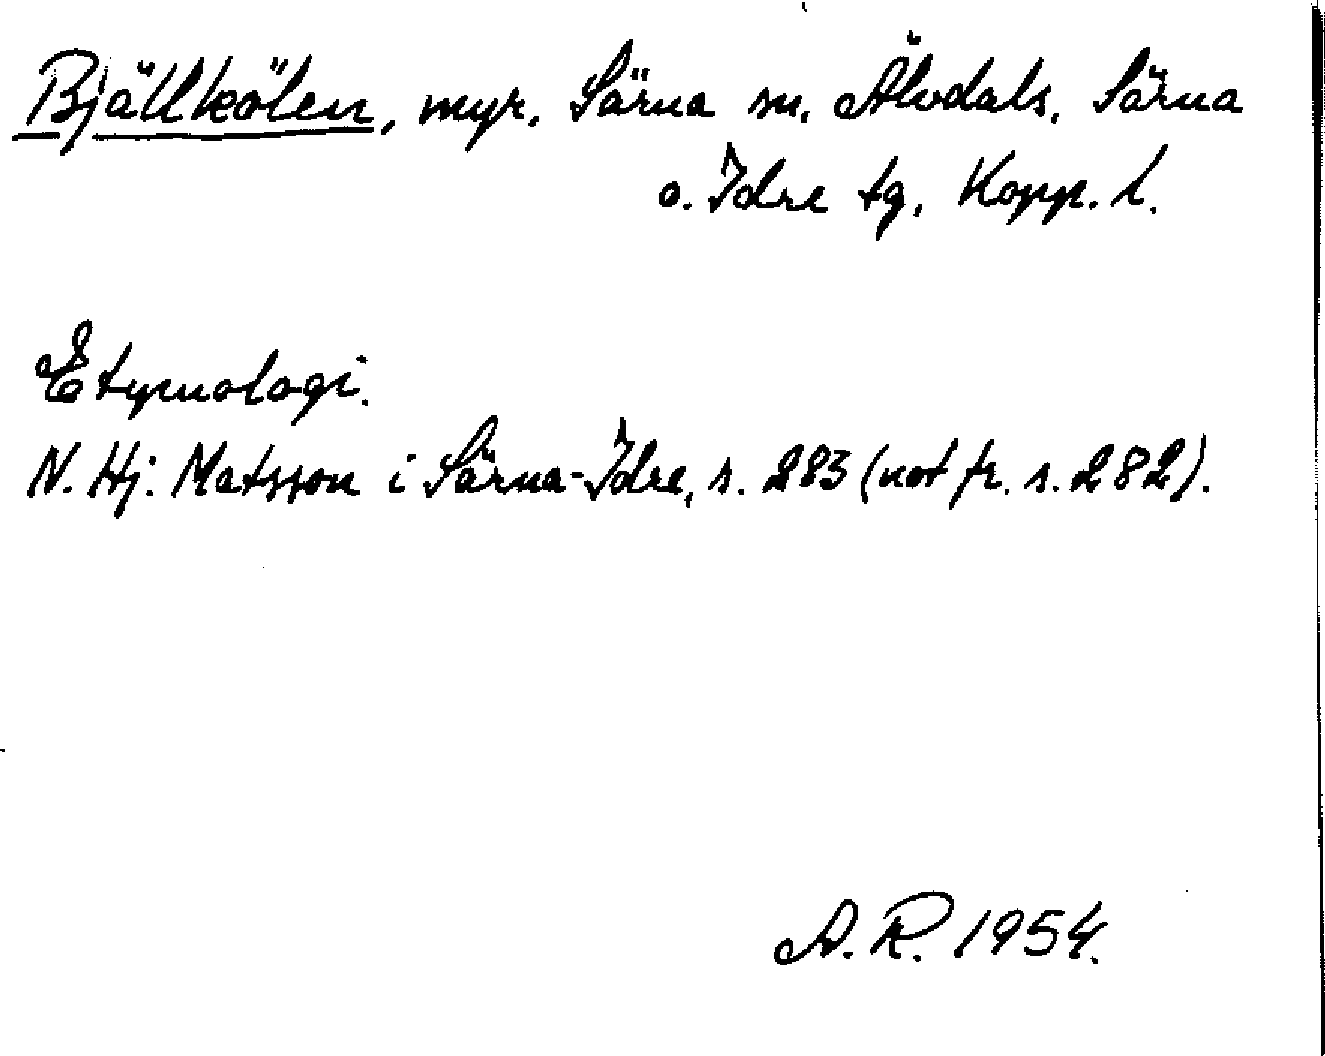 Bjällkölen, myr. Särna sn, Älvdals, Särna
o. Idre tg, Kopp. l.
Etymologi.
N. Hj. Matsson i Särna-Idre, s. 283 (not fr. s. 282).
A. R. 1954.